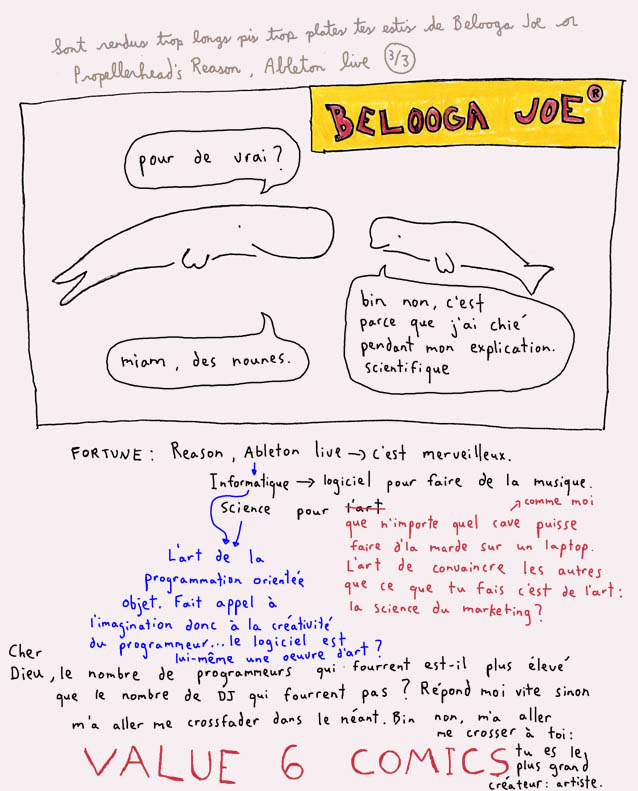 Sont rendus trop longs pis trop plates tes estis de Belooga Joe or
Propellerhead's Reason, Ableton live 3/3
BELOOGA JOE®
pour de vrai?
bin non, c'est
parce que j'ai chié
pendant mon explication.
scientifique
miam, des nounes.
FORTUNE: Reason, Ableton live → c'est merveilleux.
Informatique → logiciel pour faire de la musique.
Science pour l'art
comme moi
que n'importe quel cave puisse
faire d'la marde sur un laptop.
L'art de convaincre les autres
que ce que tu fais c'est de l'art:
la science du marketing?
L'art de la
programmation orientée
objet. Fait appel à
l'imagination donc à la créativité
du programmeur... le logiciel est
lui-même une oeuvre d'art?
Cher
Dieu, le nombre de programmeurs qui fourrent est-il plus élevé
que le nombre de DJ qui fourrent pas? Répond moi vite sinon
m'a aller me crossfader dans le néant. Bin non, m'a aller
me crosser à toi:
tu es le
plus grand
créateur: artiste.
VALUE 6 COMICS